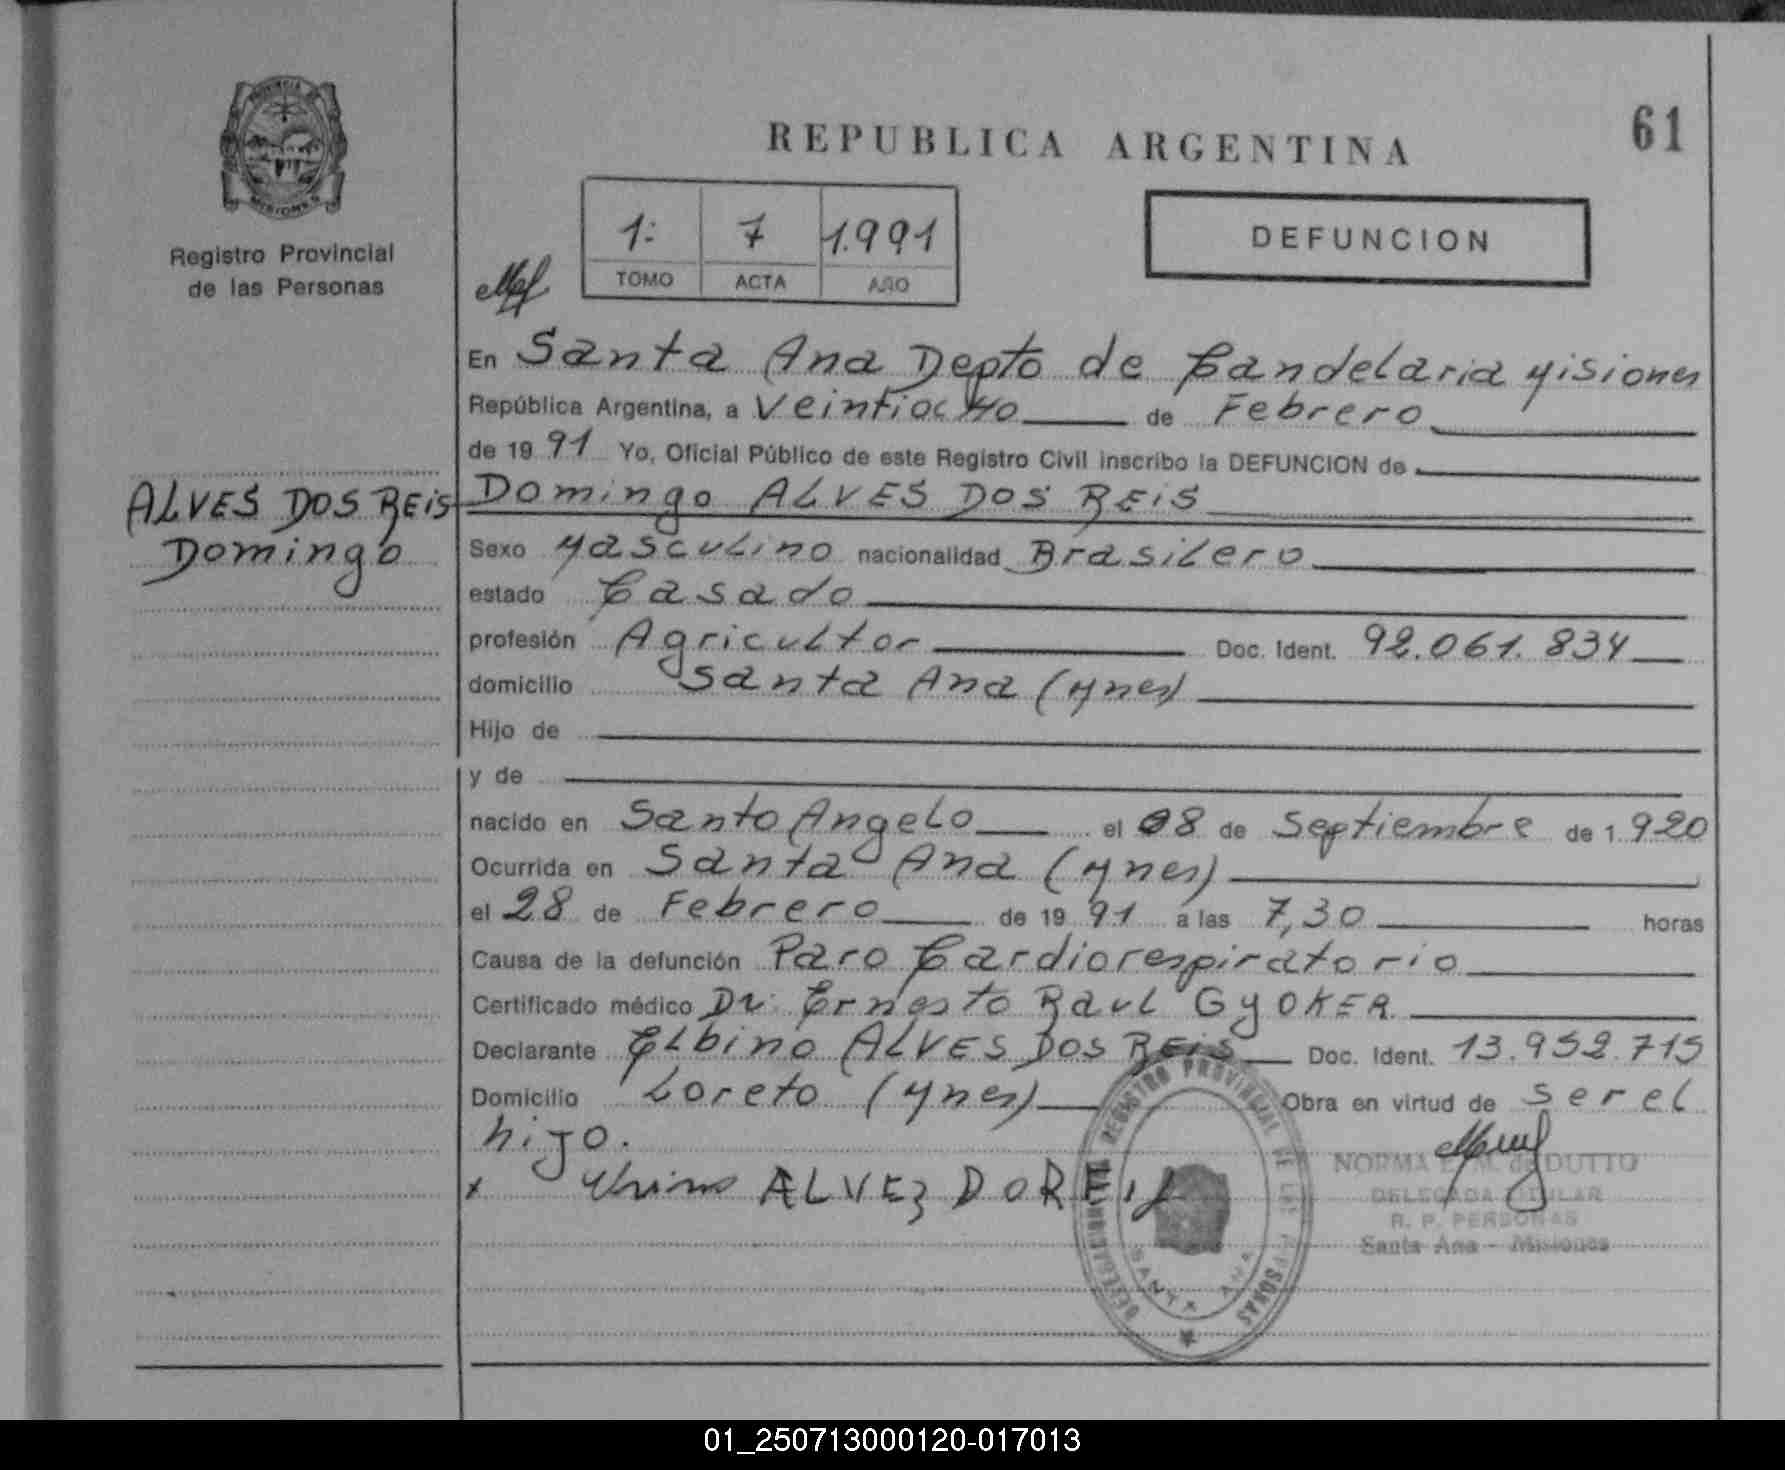 PROVINCIA DE
MISIONES
Registro Provincial
de las Personas
REPUBLICA ARGENTINA
61
1: 7 1.991
TOMO ACTA AÑO
DEFUNCION
En Santa Ana Depto de Candelaria Misiones
República Argentina, a Veintiocho de Febrero
de 19 91 Yo, Oficial Público de este Registro Civil inscribo la DEFUNCION de
ALVES DOS REIS
Domingo
Domingo ALVES DOS REIS
Sexo Masculino nacionalidad Brasilero
estado Casado
profesión Agricultor Doc. Ident. 92.061.834
domicilio Santa Ana (Mnes)
Hijo de
y de
nacido en Santo Angelo el 08 de Septiembre de 1.920
Ocurrida en Santa Ana (Mnes)
el 28 de Febrero de 19 91 a las 7,30 horas
Causa de la defunción Paro Cardiorespiratorio
Certificado médico Dr: Ernesto Raul GYOKER
Declarante Elbino ALVES DOS REIS Doc. Ident. 13.952.715
Domicilio Loreto (Mnes) Obra en virtud de ser el
hijo.
x ALVEZ DOREIS
REGISTRO PROVINCIAL DE LAS PERSONAS
SANTA ANA
NORMA E. M. de DUTTO
DELEGADA TITULAR
R. P. PERSONAS
Santa Ana - Misiones
01_250713000120-017013